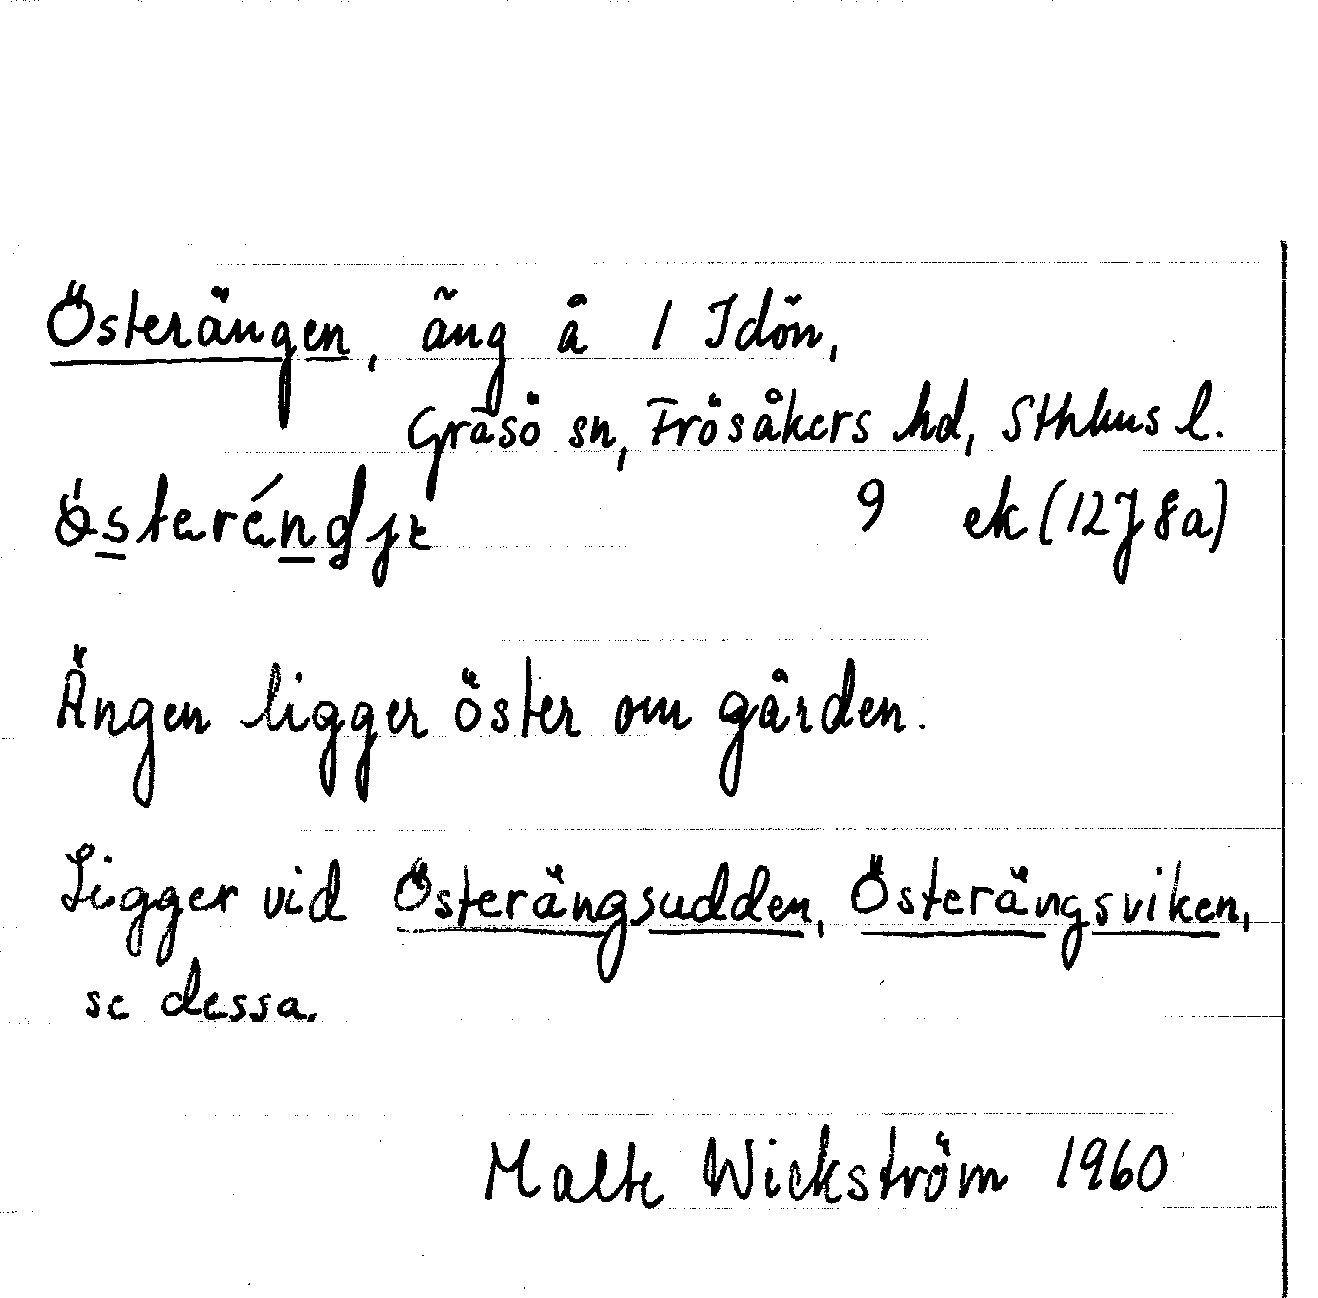 Österängen, äng å 1 Idön,
Gräsö sn, Frösåkers hd, Sthlms l.
österéndje 9 ek (12J 8a)
Ängen ligger öster om gården.
Ligger vid Österängsudden, Österängsviken,
se dessa.
Malte Wickström 1960